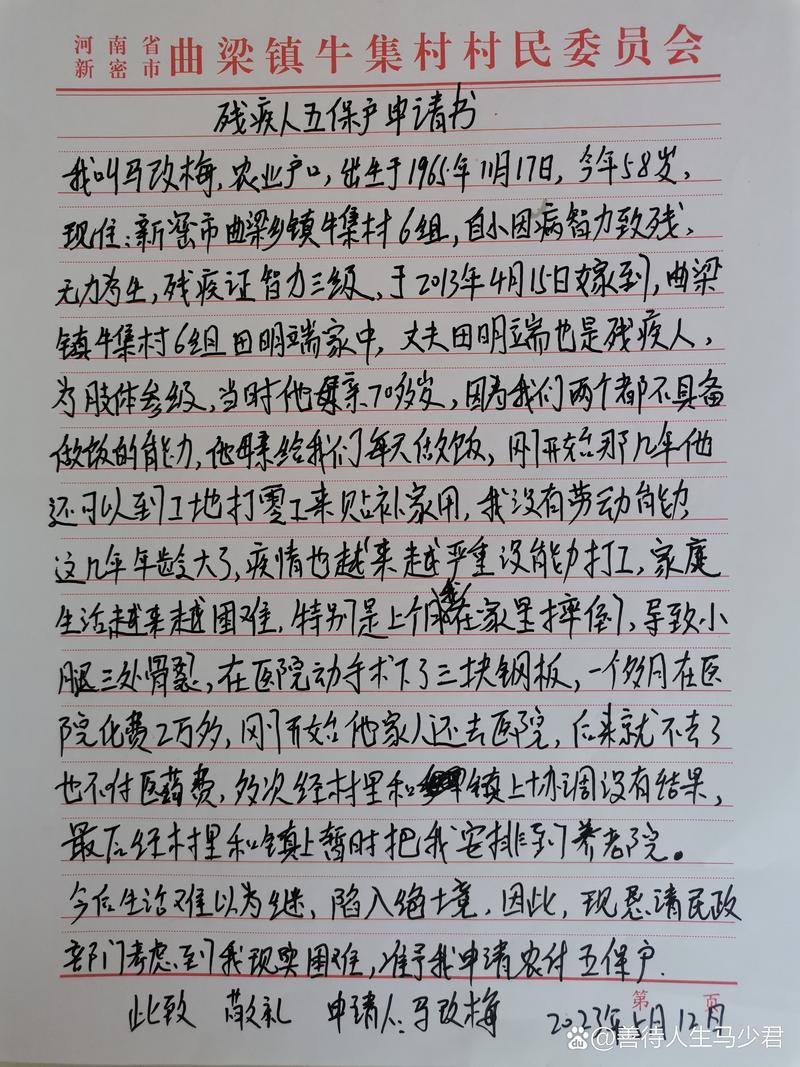 河南省
新密市 曲梁镇牛集村村民委员会
残疾人五保户申请书
我叫马改梅，农业户口，出生于1965年11月17日，今年58岁，
现住：新密市曲梁乡镇牛集村6组，自小因病智力致残，
无力为生，残疾证智力三级，于2013年4月15日嫁到，曲梁
镇牛集村6组田明端家中，丈夫田明端也是残疾人，
为肢体叁级，当时他母亲70多岁，因为我们两个都不具备
做饭的能力，他母亲给我们每天做饭，刚开始那几年他
还可以到工地打零工来贴补家用，我没有劳动能力
这几年年龄大了，病情也越来越严重没能力打工，家庭
生活越来越困难，特别是上个月我在家里摔倒，导致小
腿三处骨裂，在医院动手术下了三块钢板，一个多月在医
院化费2万多，刚开始他家人还去医院，后来就不去了
也不付医药费，多次经村里和镇上协调没有结果，
最后经村里和镇上暂时把我安排到养老院。
今后生活难以为继，陷入绝境，因此，现恳请民政
部门考虑到我现实困难，准予我申请农村五保户.
第 页
此致 敬礼 申请人：马改梅 2023年5月12日
Bai du @善待人生马少君